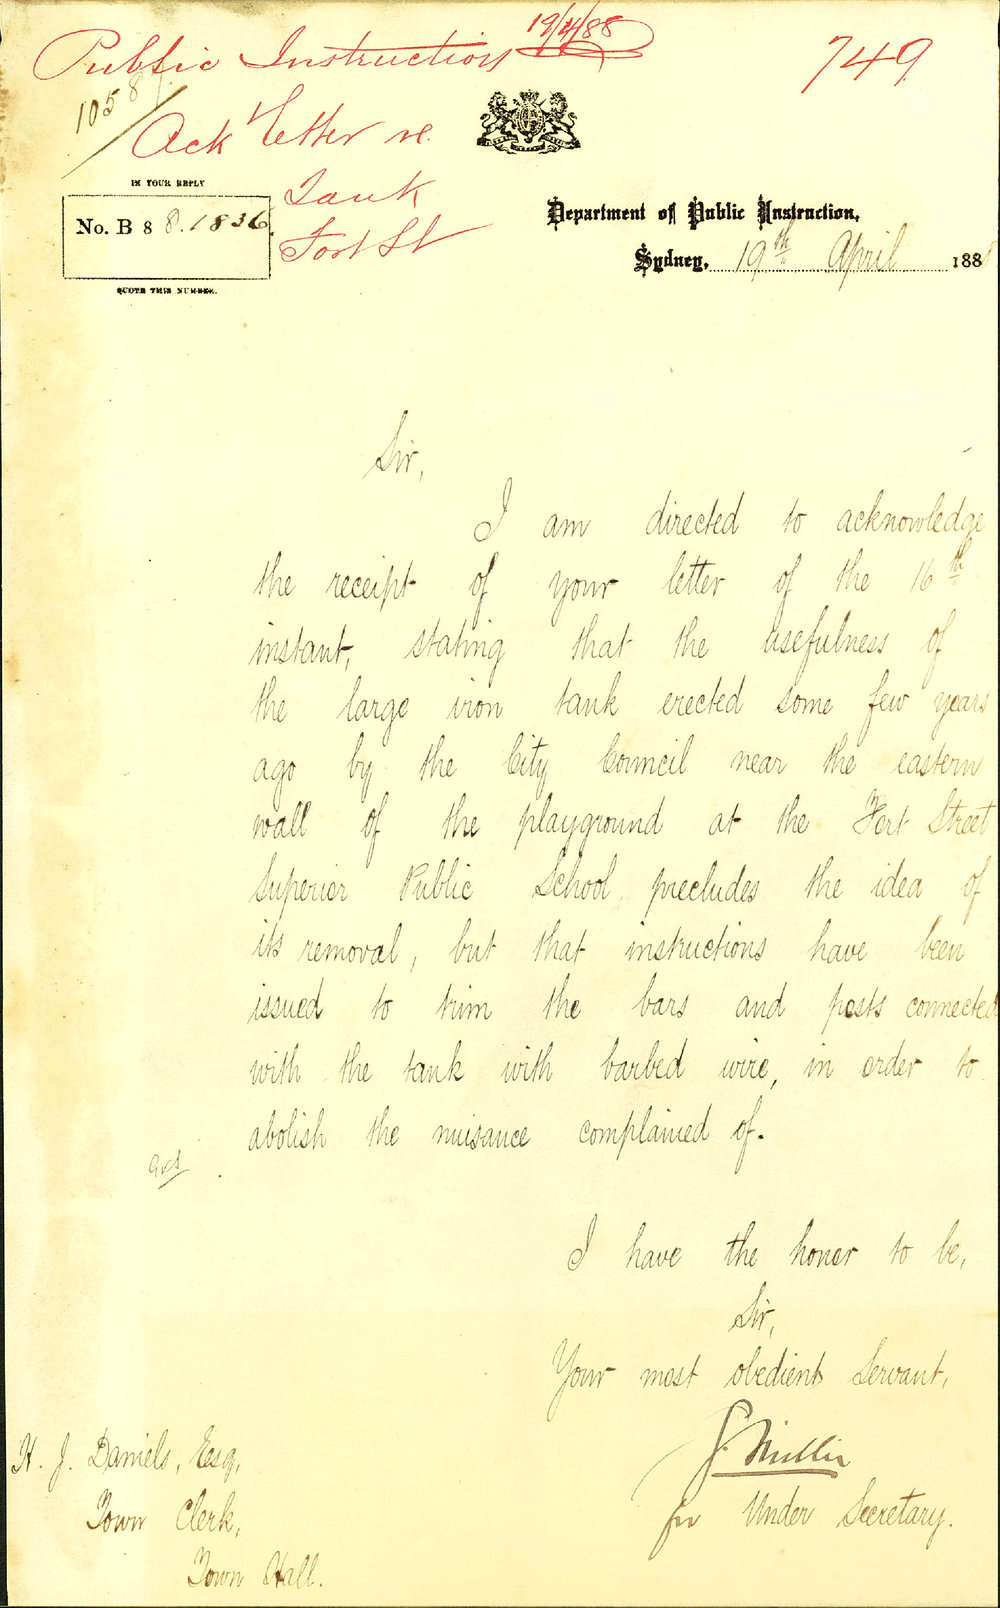 Public Instruction 19/4/88
749
Ack letter re
Tank
Fort St
IN YOUR REPLY
No. B 88.1836.
QUOTE THIS NUMBER.
Department of Public Instruction,
Sydney, 19th April 1888
Sir,
I am directed to acknowledge
the receipt of your letter of the 16th
instant, stating that the usefulness of
the large iron tank erected some few years
ago by the City Council near the eastern
wall of the playground at the Fort Street
Superior Public School precludes the idea of
its removal, but that instructions have been
issued to trim the bars and posts connected
with the tank with barbed wire, in order to
abolish the nuisance complained of.
I have the honor to be,
Sir,
Your most obedient Servant,
for Under Secretary.
H. J. Daniels, Esq,
Town Clerk,
Town Hall.